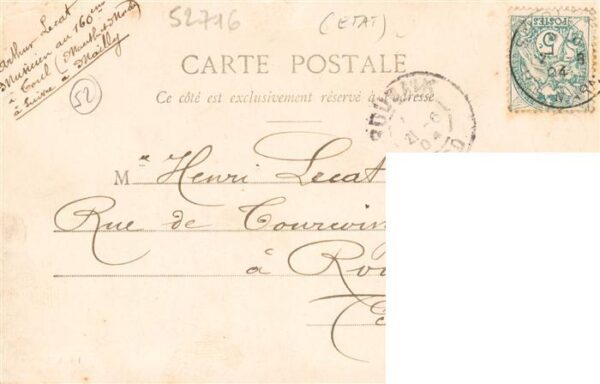 52716 (ETAT)
Arthur Lecat
Musicien au 160 em
à Toul (Meurthe & Mos
à suivre à Mailly
52
CARTE POSTALE
Ce côté est exclusivement réservé à l'adresse
POSTES
5
04
21 - 6
04
M r Henri Lecat
Rue de
à Rou